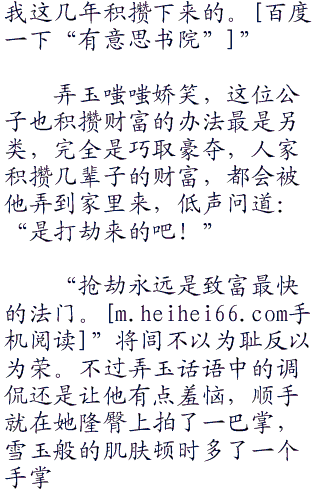 我这几年积攒下来的。[百度
一下“有意思书院”]”
弄玉嗤嗤娇笑，这位公
子也积攒财富的办法最是另
类，完全是巧取豪夺，人家
积攒几辈子的财富，都会被
他弄到家里来，低声问道：
“是打劫来的吧！”
“抢劫永远是致富最快
的法门。[m.heihei66.com手
机阅读]”将闾不以为耻反以
为荣。不过弄玉话语中的调
侃还是让他有点羞恼，顺手
就在她隆臀上拍了一巴掌，
雪玉般的肌肤顿时多了一个
手掌